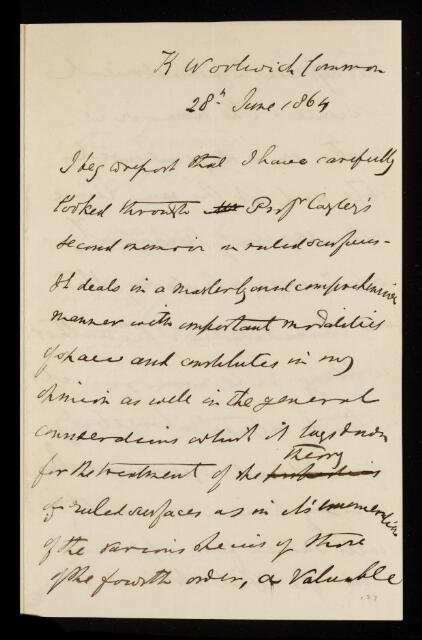 K Woolwich Common
28th June 1864
I beg to report that I have carefully
looked through Profr Cayley's
second memoir on ruled surfaces -
It deals in a masterly and comprehensive
manner with important modalities
of space and constitutes in my
opinion as well in the general
considerations which it lays down
for the treatment of the theory
of ruled surfaces as in its enumeration
of the various species of those
of the fourth order, a valuable